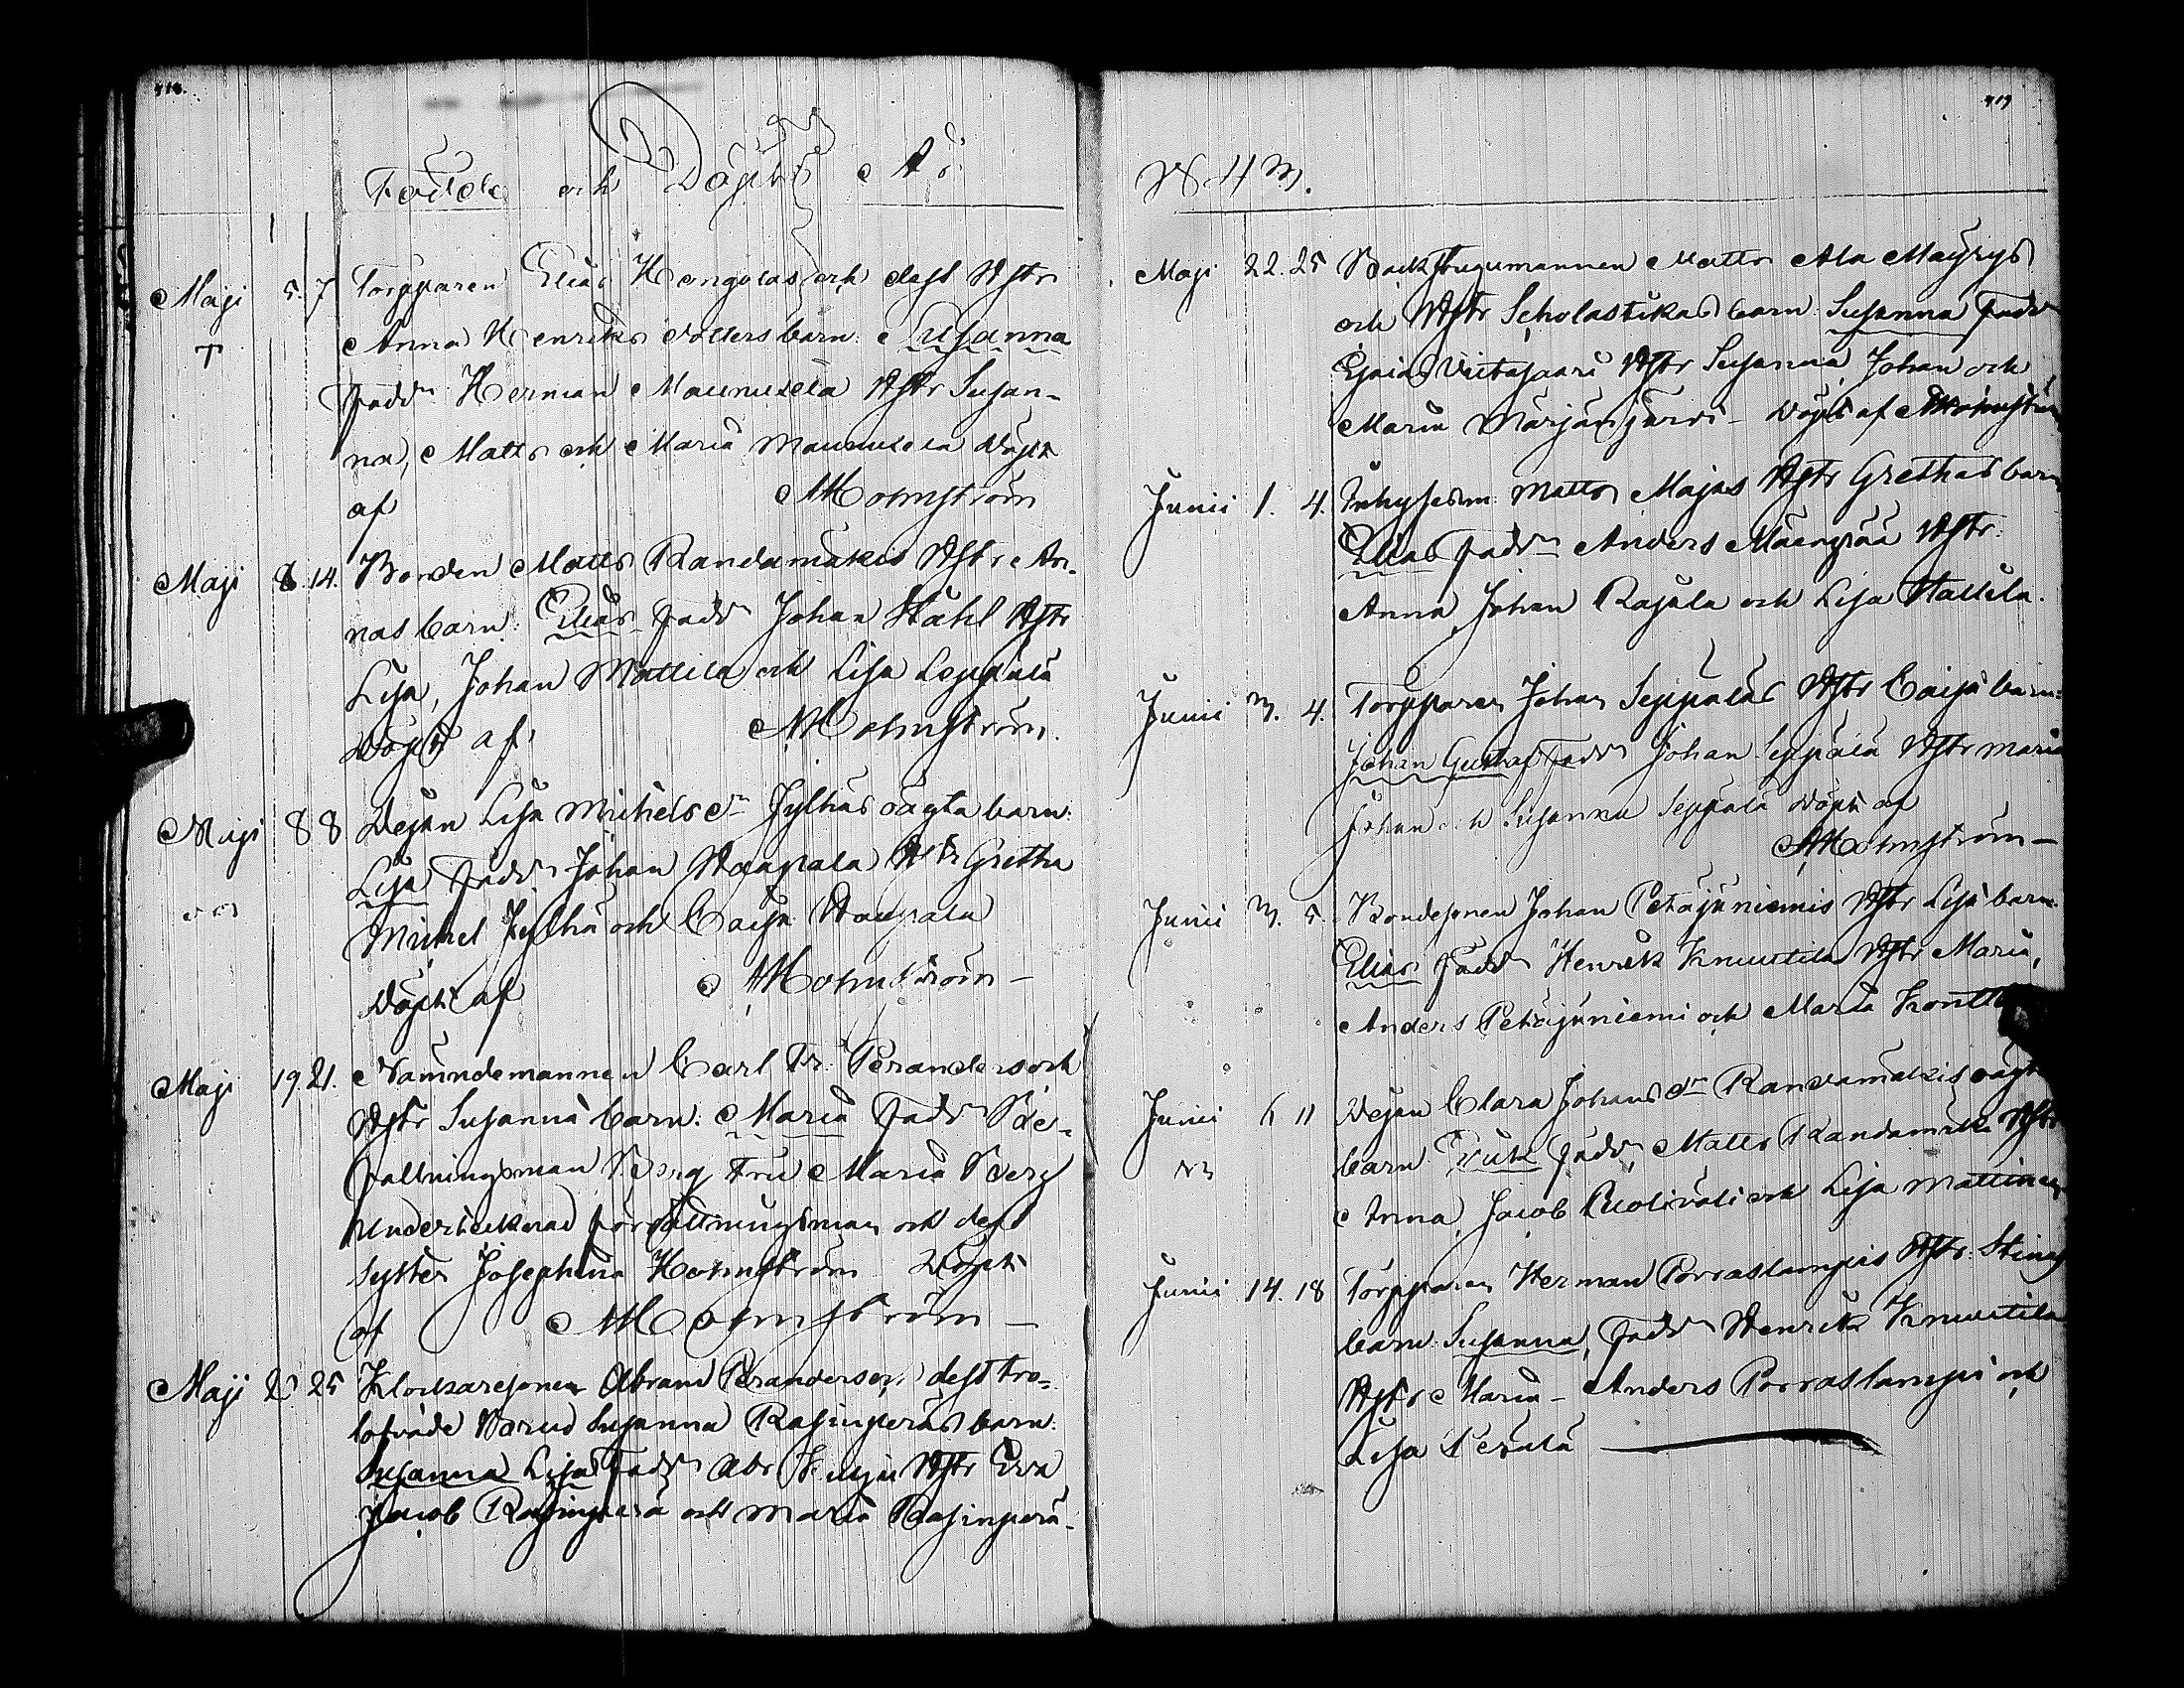 Födde och Döpte År
Maji 5. 7 Torpparen Elias Kangolas och dess Hstr
Anna Henriks dotters barn: Susanna
Fadd. Herman Maunuxela Hstr Susan-
na, Matts och Maria Maunuxela döpt
af AHolmström
Maji 8. 14. Bonden Matts Randamäkis Hstr An-
nas barn: Elias Fadd. Johan Ståhl Hstr
Lisa, Johan Mattila och Lisa Leppälä
döpt af AHolmström.
Maji 8 8 Pigan Lisa Michelsdr Jylhäs oägta barn:
Lisa Fadd. Johan Haapala Hstr Gretha
Michel Jylhä och Caisa Haapala
döpt af AHolmström
Maji 19. 21. Nämndemannen Carl Fr. Peranders och
Hstr Susannas barn: Maria Fadd. Be-
fallningsman Berg Fru Maria Berg
Undertecknad förvaltningsman och dess
syster Josephina Holmström Döpt
af AHolmström
Maji 25 Klockaresonen Abram Peranderson dess tro-
lofvade Susanna Rasinperäs barn:
Susanna Lisa Fadd. Abr Hstr Eva
Jacob Rasinperä och Maria Rasinperä
1843.
Maji 22. 25 Backstugumannen Matts Ala Mäyrys
och Hstr Scholastikas barn: Susanna Fadd
Esaias Viitasaari Hstr Susanna, Johan och
Maria Marjanjärvi - döpt af AHolmström
Junii 1. 4. Inhysem. Matts Majas Hstr Grethas barn
Elias Fadd. Anders Mäenpää Hstr:
Anna, Johan Rajala och Lisa Hallila.
Junii 3. 4. Torpparen Johan Seppäläs Hstr Caisas barn:
Johan Gustaf Fadd Johan Seppälä Hstr Maria
Johan och Susanna Seppälä döpt af
AHolmström
Junii 3. 5. Bondesonen Johan Petäjäniemis Hstr Lisas barn:
Elias Fadd Henrik Knuutila Hstr Maria,
Anders Petäjäniemi och Maria
Junii 6 11 Pigan Clara Johansdr Randamäkis oägta
barn Erik Fadd. Matts Randamäki Hstr
Anna, Jacob och Lisa Mattinen
Junii 14. 18 Torpparen Herman Porraslampis Hstr: Stinas
barn: Susanna, Fadd Henrik Knuutila
Hstr Maria - Anders Porraslampi och
Lisa Perälä